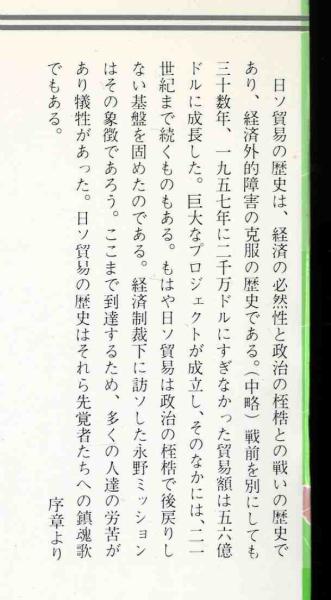 日ソ貿易の歴史は、経済の必然性と政治の桎梏との戦いの歴史で
あり、経済外的障害の克服の歴史である。(中略)戦前を別にしても
三十数年、一九五七年に二千万ドルにすぎなかった貿易額は五六億
ドルに成長した。巨大なプロジェクトが成立し、そのなかには、二一
世紀まで続くものもある。もはや日ソ貿易は政治の桎梏で後戻りし
ない基盤を固めたのである。経済制裁下に訪ソした永野ミッション
はその象徴であろう。ここまで到達するため、多くの人達の労苦が
あり犠牲があった。日ソ貿易の歴史はそれら先覚者たちへの鎮魂歌
でもある。
序章より